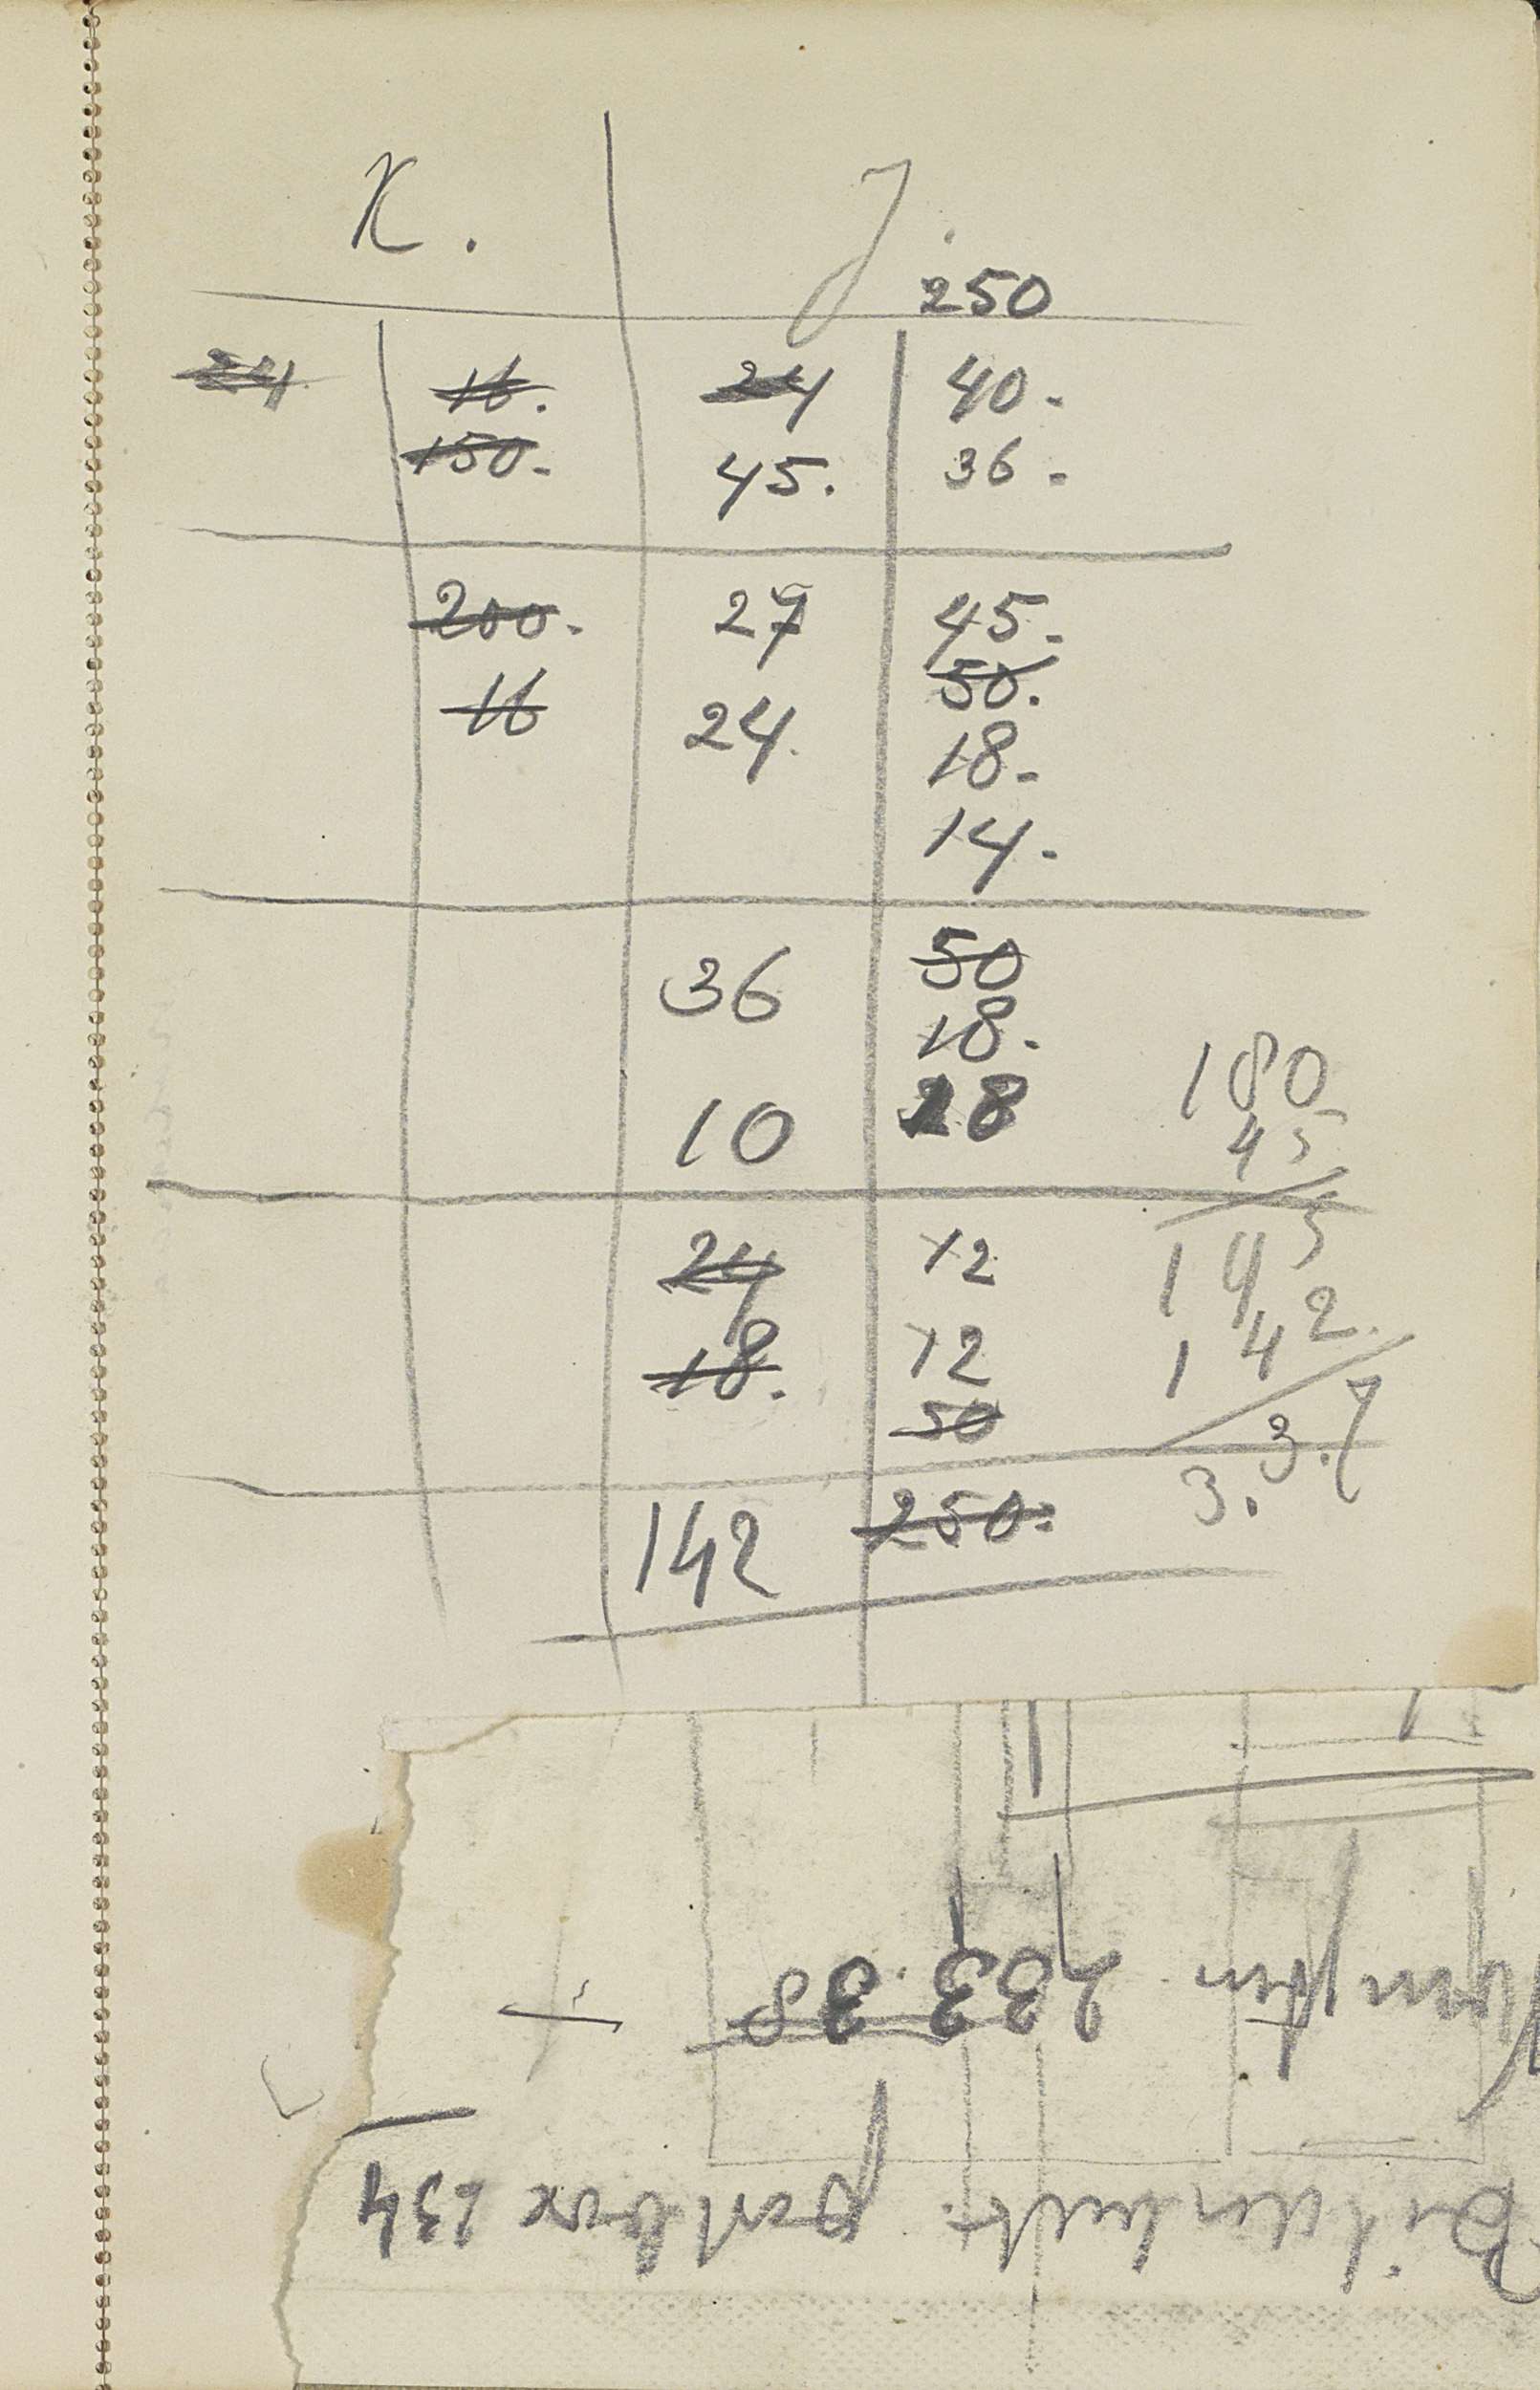 K. J.
250
24 16. 24 40.-
150.- 45. 36.-
200.- 27 45.-
50.
16 24. 18.-
14.-
50
36 18.-
10 28
180
45
24 12 145
18. 12 142.
50 3.7
142 250. 3.
233.38
postbox 234